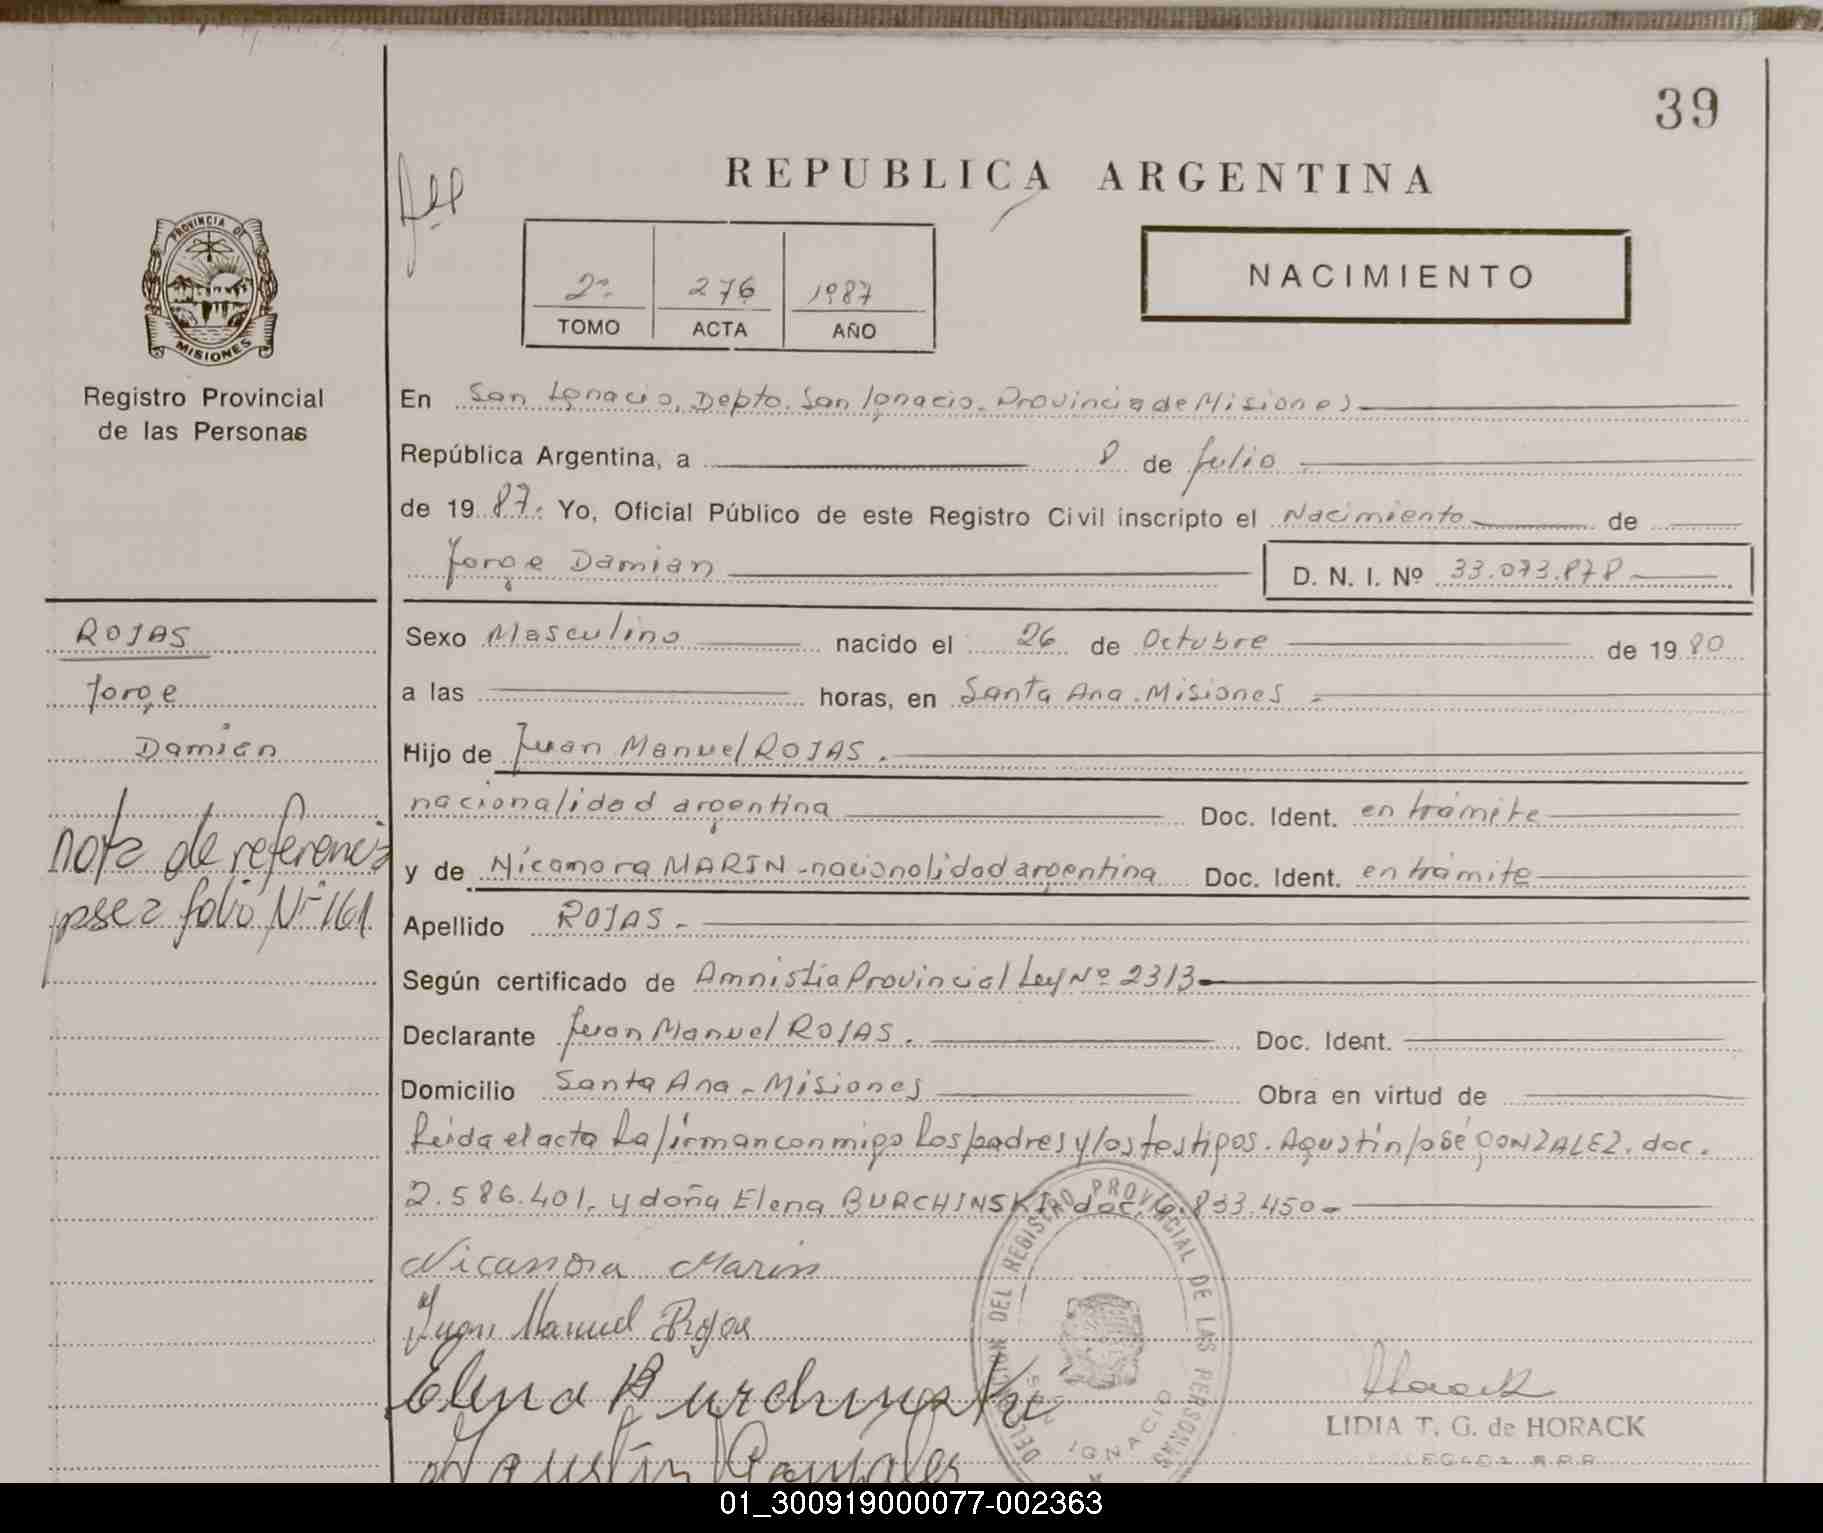 39
REPUBLICA ARGENTINA
PROVINCIA DE
MISIONES
Registro Provincial
de las Personas
2º 276 1987
TOMO ACTA AÑO
NACIMIENTO
En San Ignacio, Depto. San Ignacio. Provincia de Misiones
República Argentina, a 8 de Julio
de 19 87. Yo, Oficial Público de este Registro Civil inscripto el Nacimiento de
Jorge Damian D. N. I. Nº 33.073.878
ROJAS
Jorge
Damian
nota de referencia
pase a folio Nº 161
Sexo Masculino nacido el 26 de Octubre de 19 80
a las horas, en Santa Ana. Misiones.
Hijo de Juan Manuel ROJAS.
nacionalidad argentina Doc. Ident. en trámite
y de Nicamora MARIN - nacionalidad argentina Doc. Ident. en trámite
Apellido ROJAS.
Según certificado de Amnistía Provincial Ley Nº 2313
Declarante Juan Manuel ROJAS. Doc. Ident.
Domicilio Santa Ana - Misiones Obra en virtud de
Leida el acta la firman conmigo los padres y los testigos. Agustín José GONZALEZ. doc.
2.586.401. y doña Elena BURCHINSKI doc. 6.833.450-
Nicanora Marin
Juan Manuel Rojas
Elena Burchinski
Agustín Gonzales
DELEGACION DEL REGISTRO PROVINCIAL DE LAS PERSONAS
SAN IGNACIO
Horack
LIDIA T. G. de HORACK
01_300919000077-002363